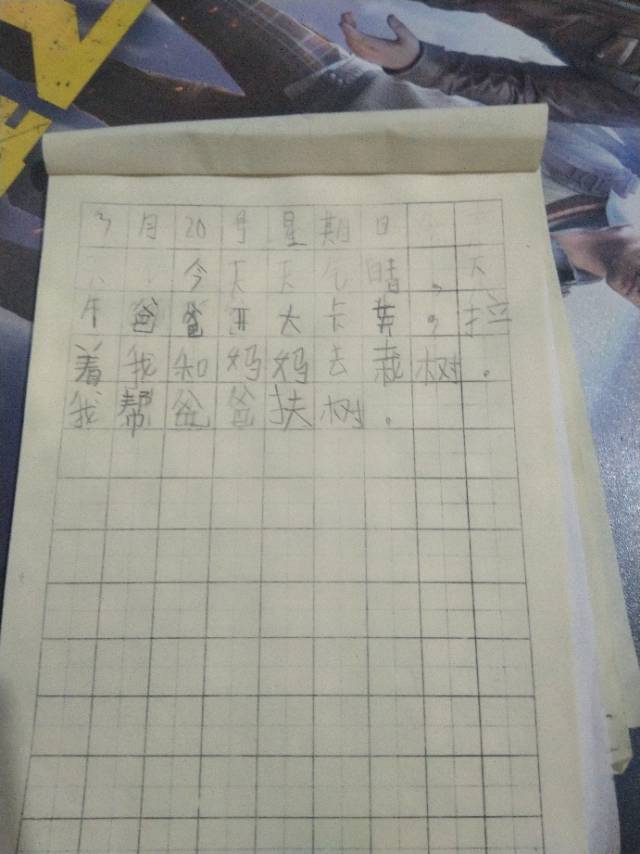 3月20号星期日
今天天气晴,下
午爸爸开大卡黄,拉
着我和妈妈去栽树。
我帮爸爸扶树。